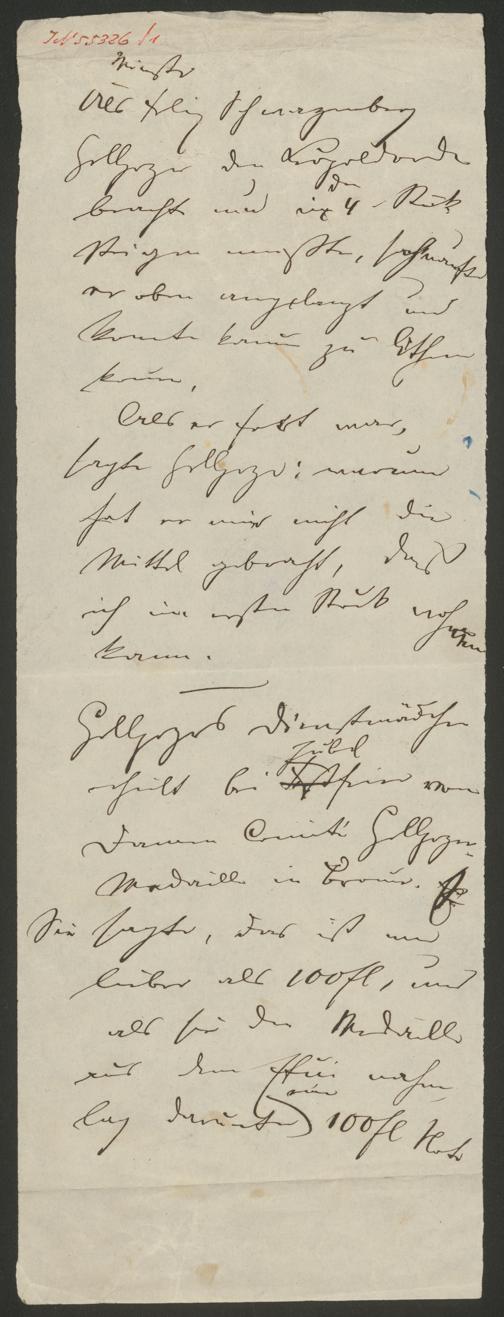 I.N. 55326/1
Minister
Als Felix Schwarzenberg
Grillparzer den Leopoldorden
bracht und in den 4 - Stock
steigen mußte, schnaufte
er oben angelangt und
konnte kaum zu Athem
komen.
Als er fort war,
sagte Grillparzer: warum
hat er mir nicht die
Mittel gebracht, daß
ich im ersten Stock wohnen
kann.
Grillparzers Dienstmädchen
erhielt bei Jubel feier vom
Damen Comité Grillparzer-
Medaille in Bronce.
Sie sagte, das ist mir
lieber als 100 fl, und
als sie die Medaille
aus dem Etui nahm
lag darunter eine 100 fl Note